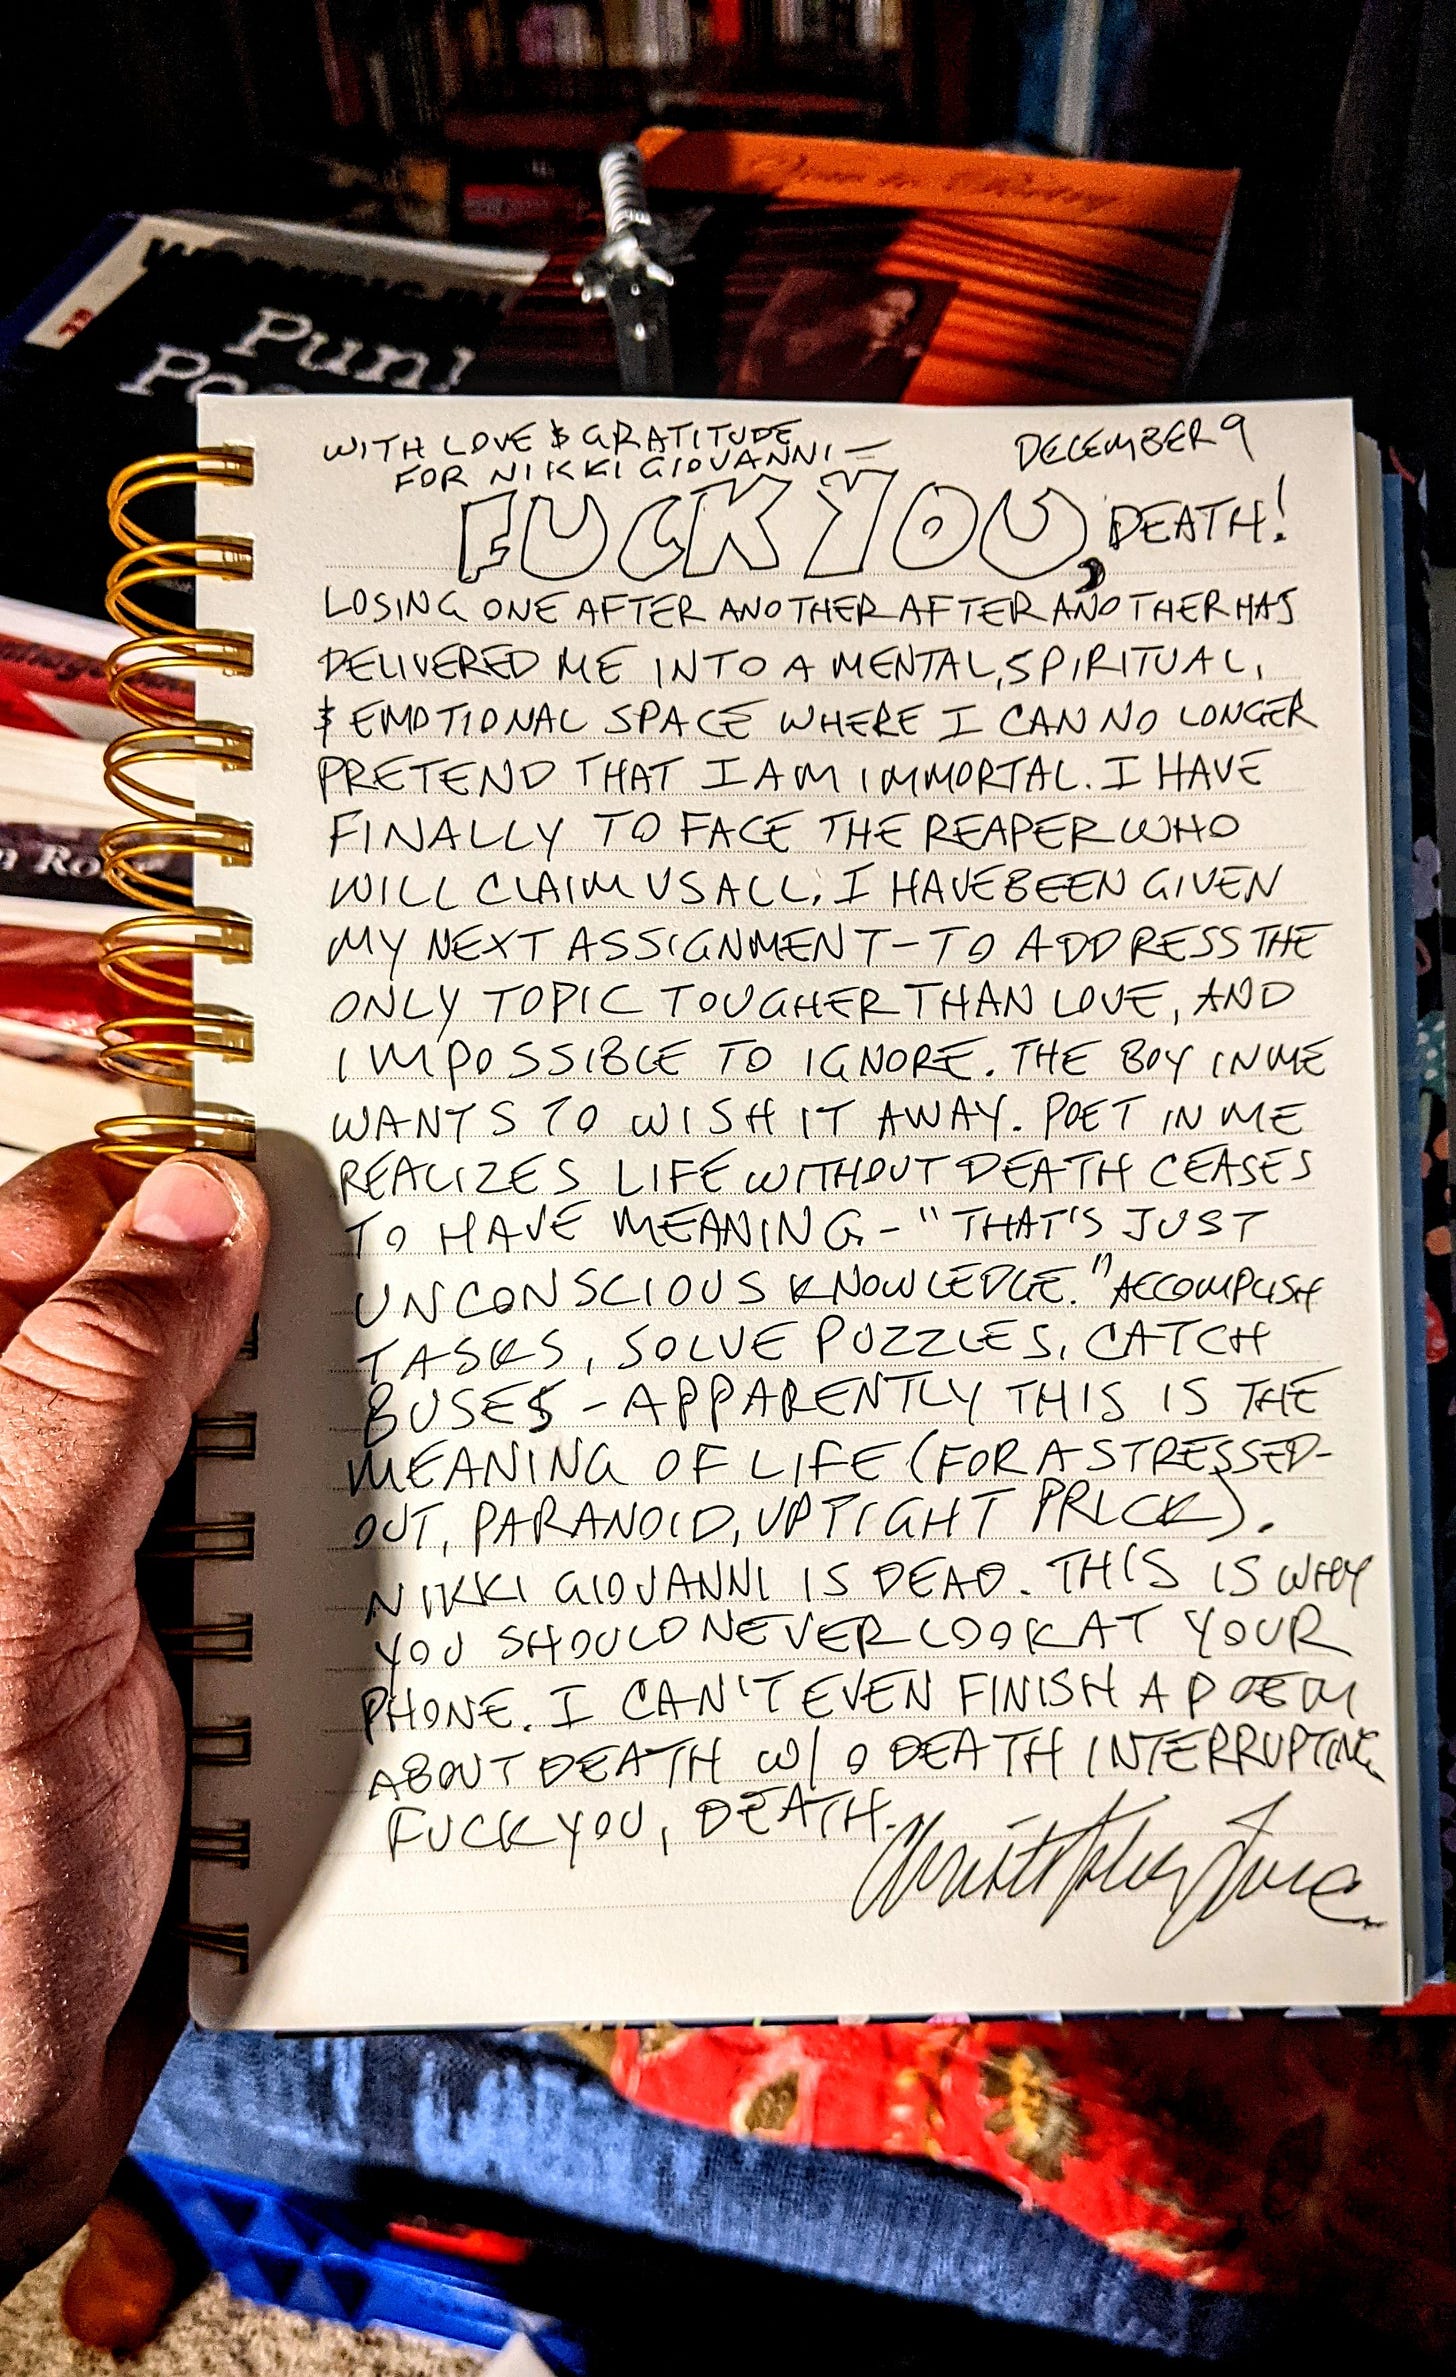 Open in Poetry
Pun
WITH LOVE & GRATITUDE
FOR NIKKI GIOVANNI—
DECEMBER 9
FUCK YOU, DEATH!
LOSING ONE AFTER ANOTHER AFTER ANOTHER HAS
DELIVERED ME INTO A MENTAL, SPIRITUAL,
& EMOTIONAL SPACE WHERE I CAN NO LONGER
PRETEND THAT I AM IMMORTAL. I HAVE
FINALLY TO FACE THE REAPER WHO
WILL CLAIM US ALL. I HAVE BEEN GIVEN
MY NEXT ASSIGNMENT – TO ADDRESS THE
ONLY TOPIC TOUGHER THAN LOVE, AND
IMPOSSIBLE TO IGNORE. THE BOY IN ME
WANTS TO WISH IT AWAY. POET IN ME
REALIZES LIFE WITHOUT DEATH CEASES
TO HAVE MEANING – "THAT'S JUST
UNCONSCIOUS KNOWLEDGE." ACCOMPLISH
TASKS, SOLVE PUZZLES, CATCH
BUSES – APPARENTLY THIS IS THE
MEANING OF LIFE (FOR A STRESSED-
OUT, PARANOID, UPTIGHT PRICK).
NIKKI GIOVANNI IS DEAD. THIS IS WHY
YOU SHOULD NEVER LOOK AT YOUR
PHONE. I CAN'T EVEN FINISH A POEM
ABOUT DEATH W/O DEATH INTERRUPTING.
FUCK YOU, DEATH.